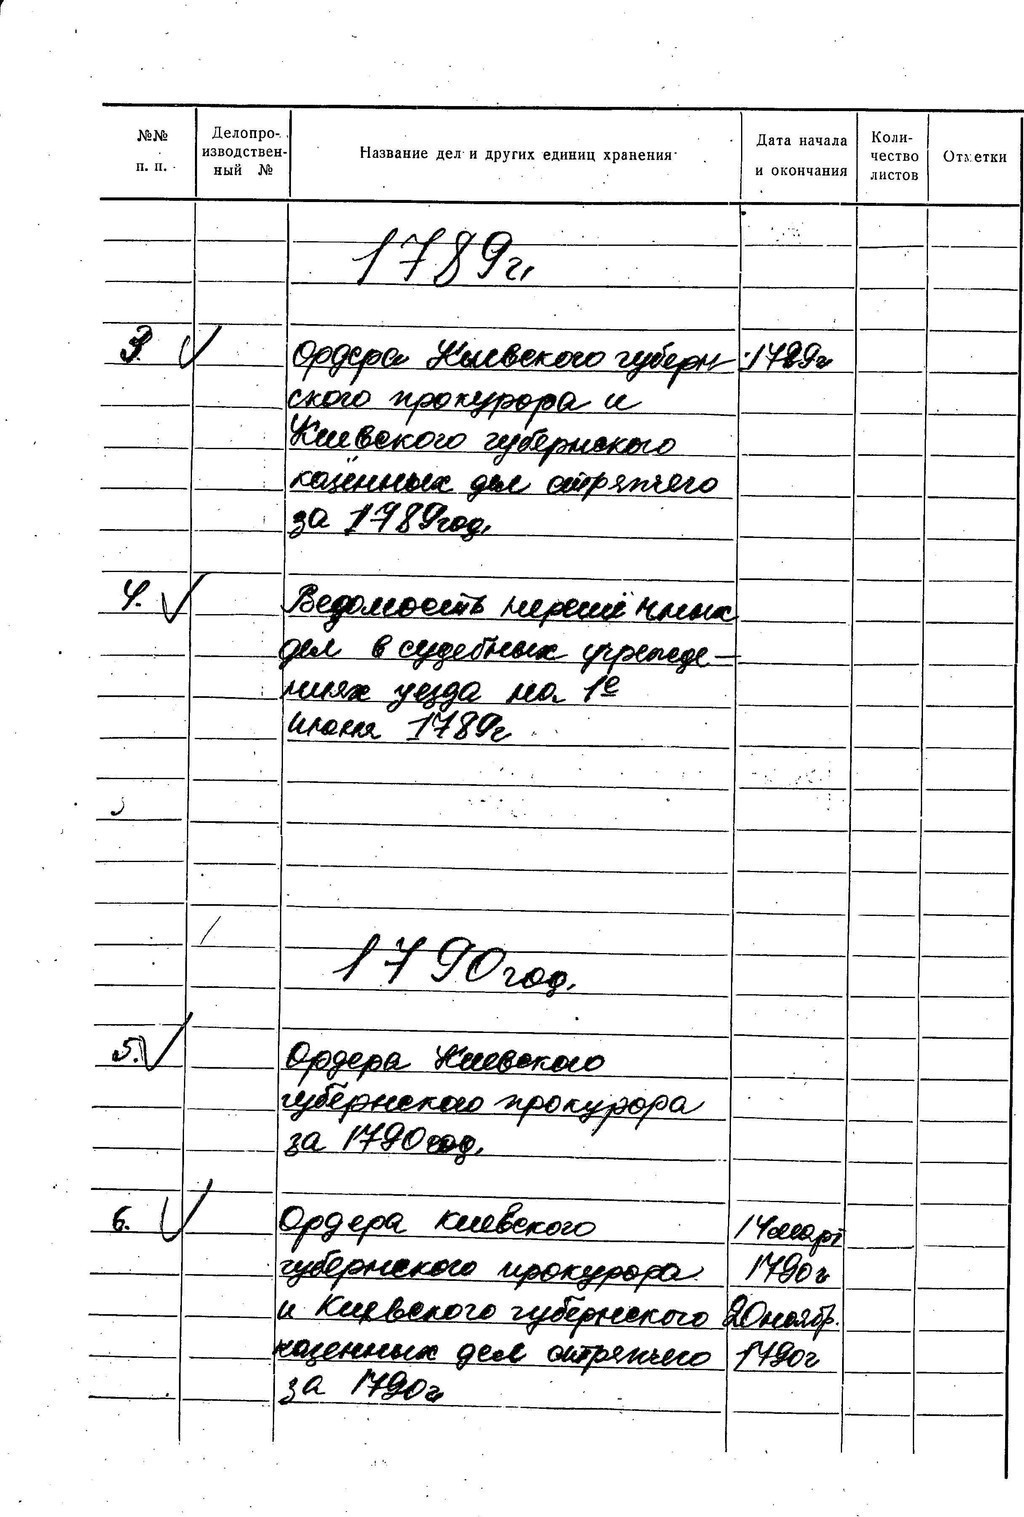 №№ п. п.
Делопро-
изводствен-
ный №
Название дел и других единиц хранения
Дата начала
и окончания
Коли-
чество
листов
Отметки
1789г.
3. Ордера Киевского губерн- 1789г
ского прокурора и
Киевского губернского
казённых дел стряпчего
за 1789год.
4. Ведомость нерешённых
дел в судебных учрежде-
ниях уезда на 1е
июня 1789г
1790год.
5. Ордера Киевского
губернского прокурора
за 1790год.
6. Ордера Киевского 14март
губернского прокурора 1790г
и Киевского губернского 20ноябр.
казенных дел стряпчего 1790г
за 1790г